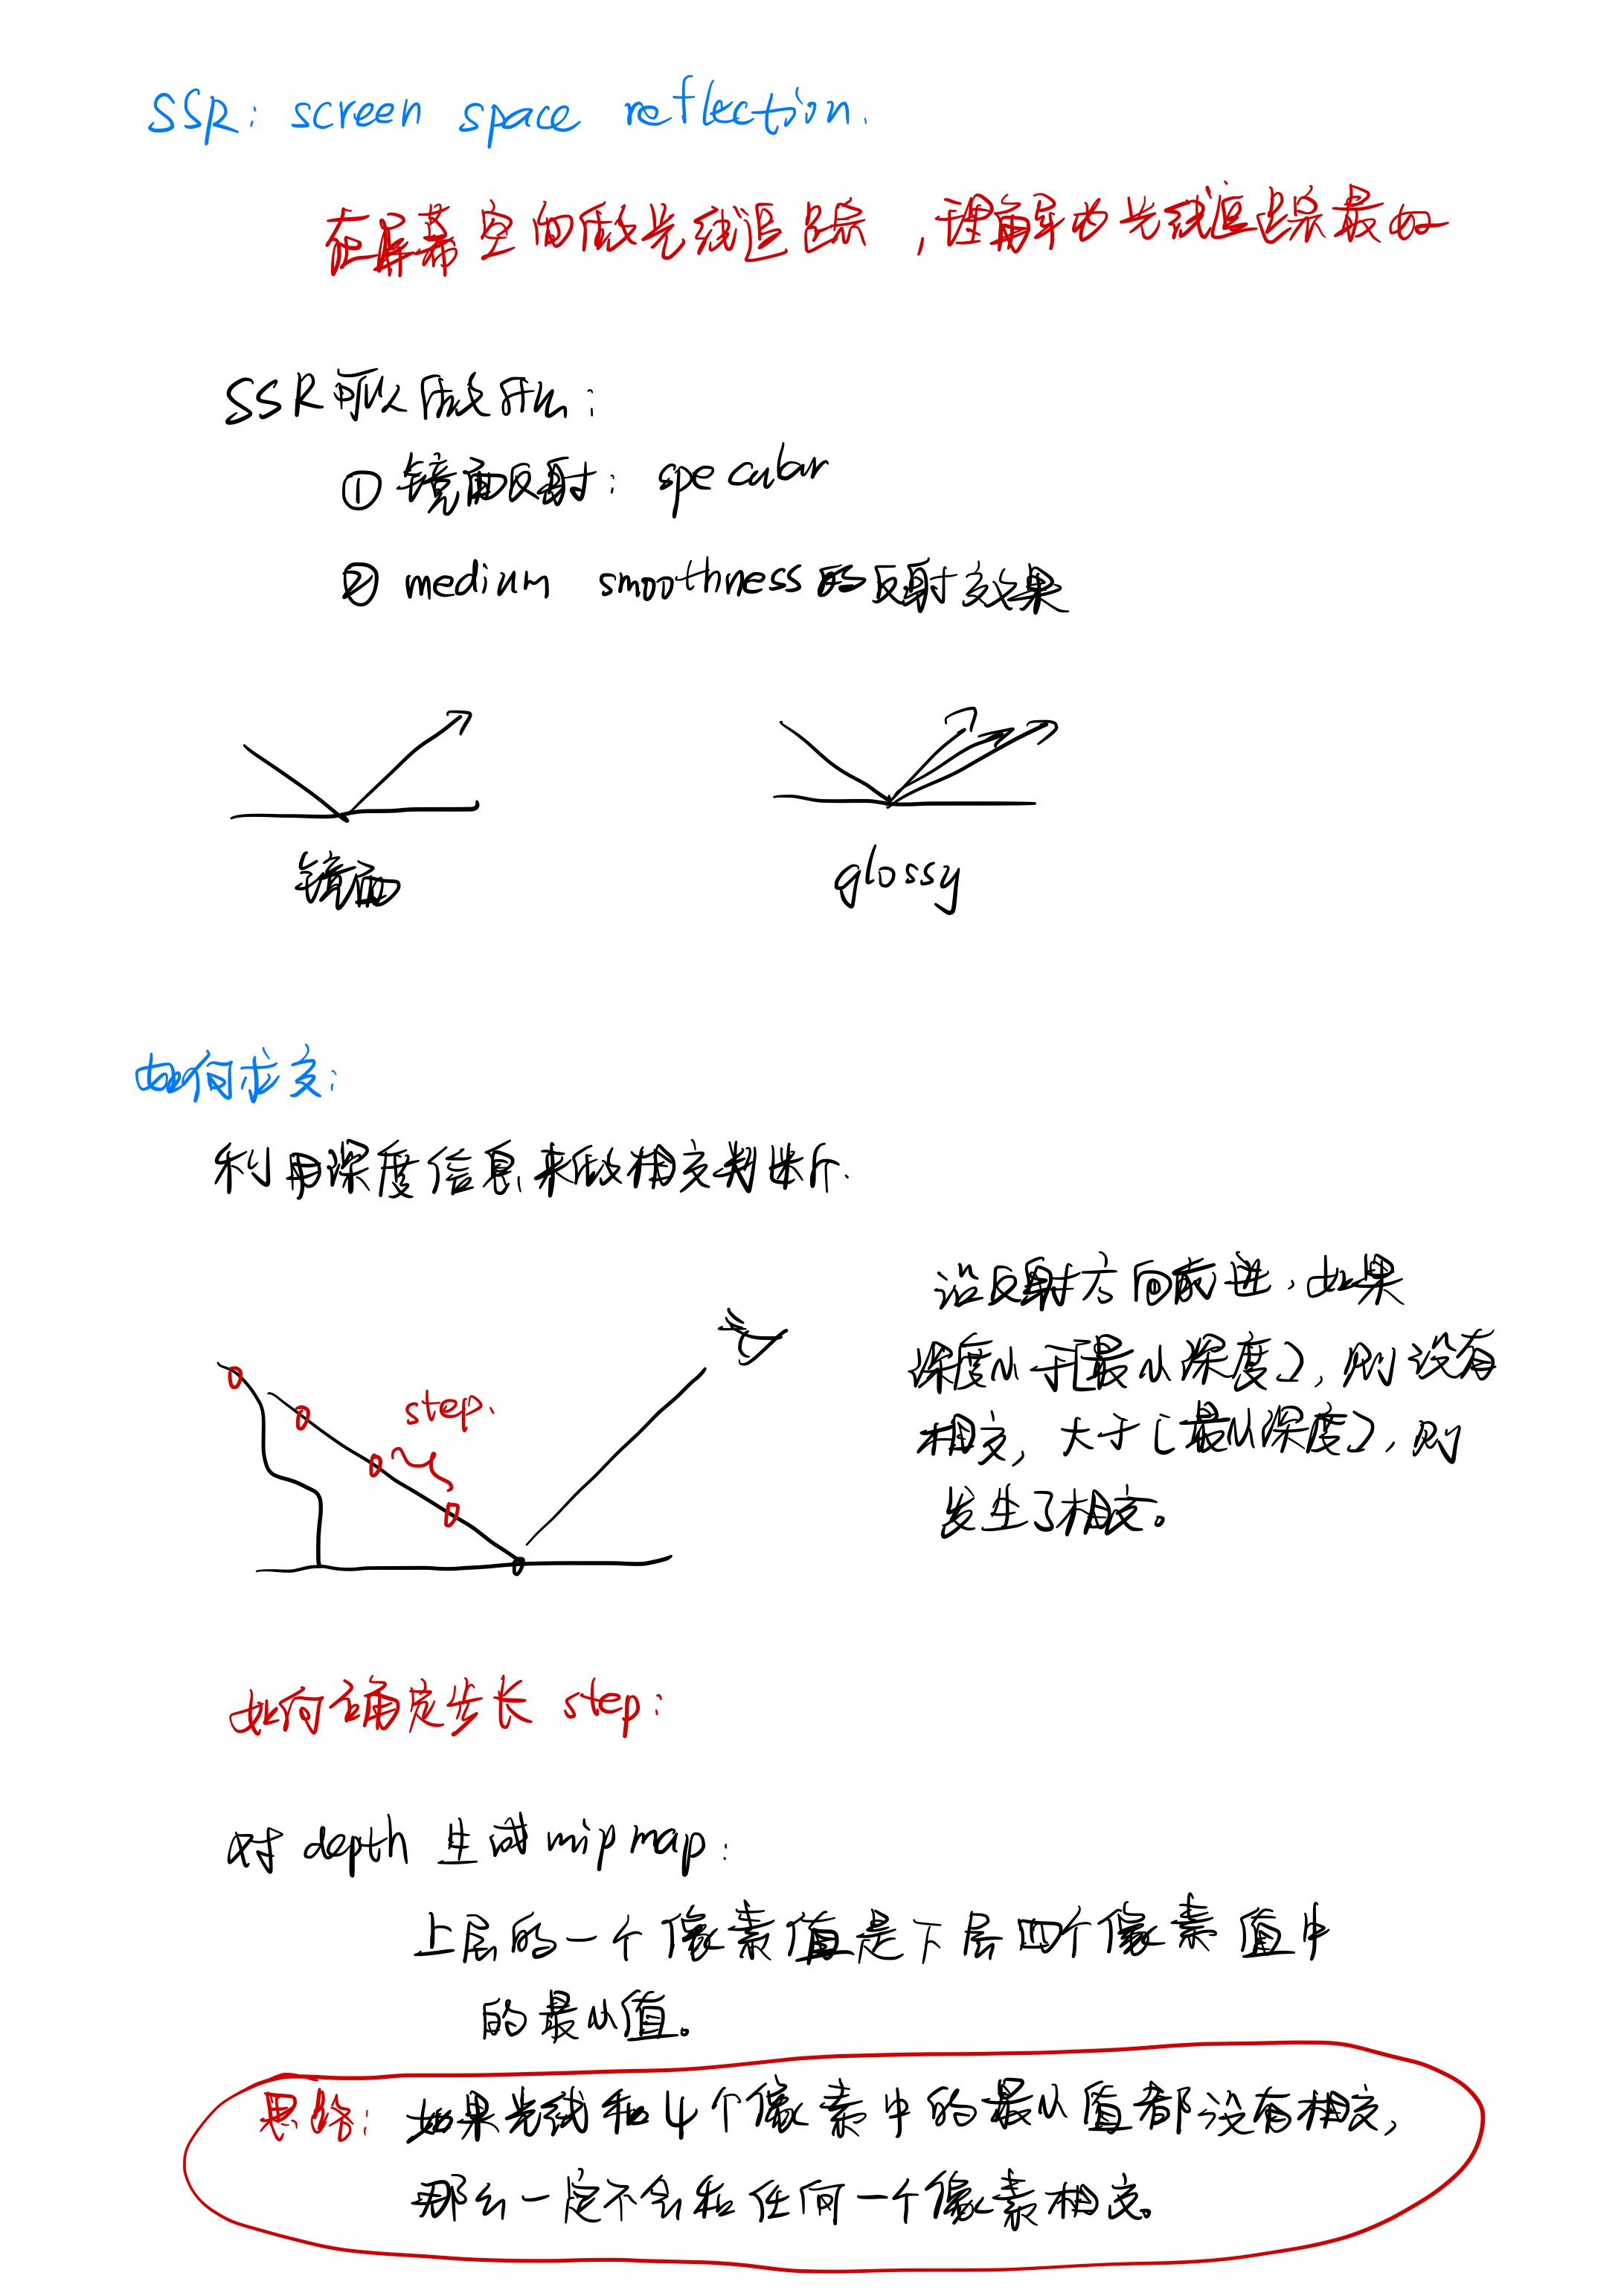 SSR: screen space reflection.
在屏幕空间做光线追踪，理解为光线追踪最好
SSR可以做到:
① 镜面反射: specular
② medium smoothness的反射效果
镜面
glossy
如何求交:
利用深度信息来做相交判断.
沿反射方向前进，如果
深度小于[最小深度]，则没有
相交，大于[最小深度]，则
发生了相交。
step.
如何确定步长 step:
对 depth 生成 mipmap:
上层的一个像素值是下层四个像素值中
的最小值。
思路: 如果光线和4个像素中的最小值都没有相交,
那么一定不会和任何一个像素相交。